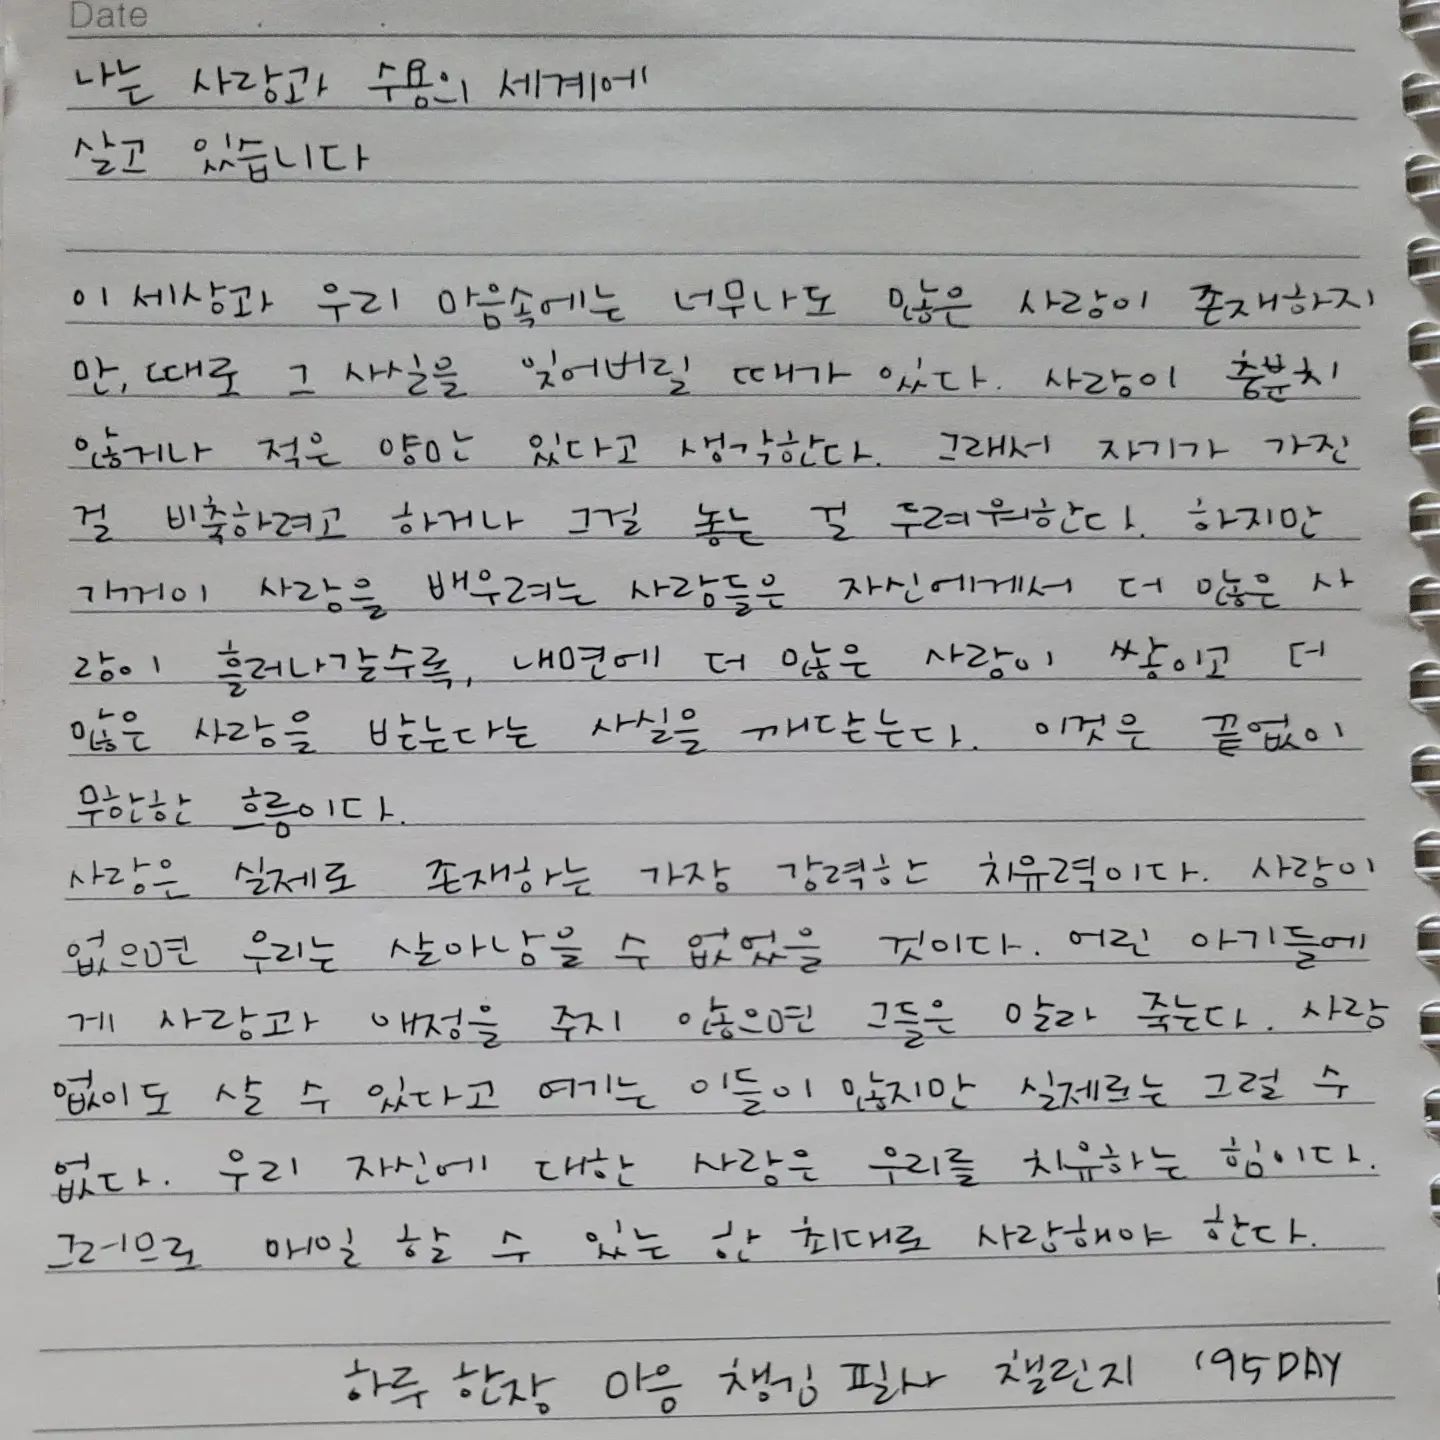 Date
나는 사랑과 수용의 세계에
살고 있습니다
이 세상과 우리 마음속에는 너무나도 많은 사랑이 존재하지
만, 때로 그 사실을 잊어버릴 때가 있다. 사랑이 충분치
않거나 적은 양만 있다고 생각한다. 그래서 자기가 가진
걸 비축하려고 하거나 그걸 놓는 걸 두려워한다. 하지만
기꺼이 사랑을 배우려는 사람들은 자신에게서 더 많은 사
랑이 흘러나갈수록, 내면에 더 많은 사랑이 쌓이고 더
많은 사랑을 받는다는 사실을 깨닫는다. 이것은 끝없이
무한한 흐름이다.
사랑은 실제로 존재하는 가장 강력한 치유력이다. 사랑이
없으면 우리는 살아남을 수 없었을 것이다. 어린 아기들에
게 사랑과 애정을 주지 않으면 그들은 말라 죽는다. 사랑
없이도 살 수 있다고 여기는 이들이 많지만 실제로는 그럴 수
없다. 우리 자신에 대한 사랑은 우리를 치유하는 힘이다.
그러므로 매일 할 수 있는 한 최대로 사랑해야 한다.
하루 한장 마음 챙김 필사 챌린지 195DAY